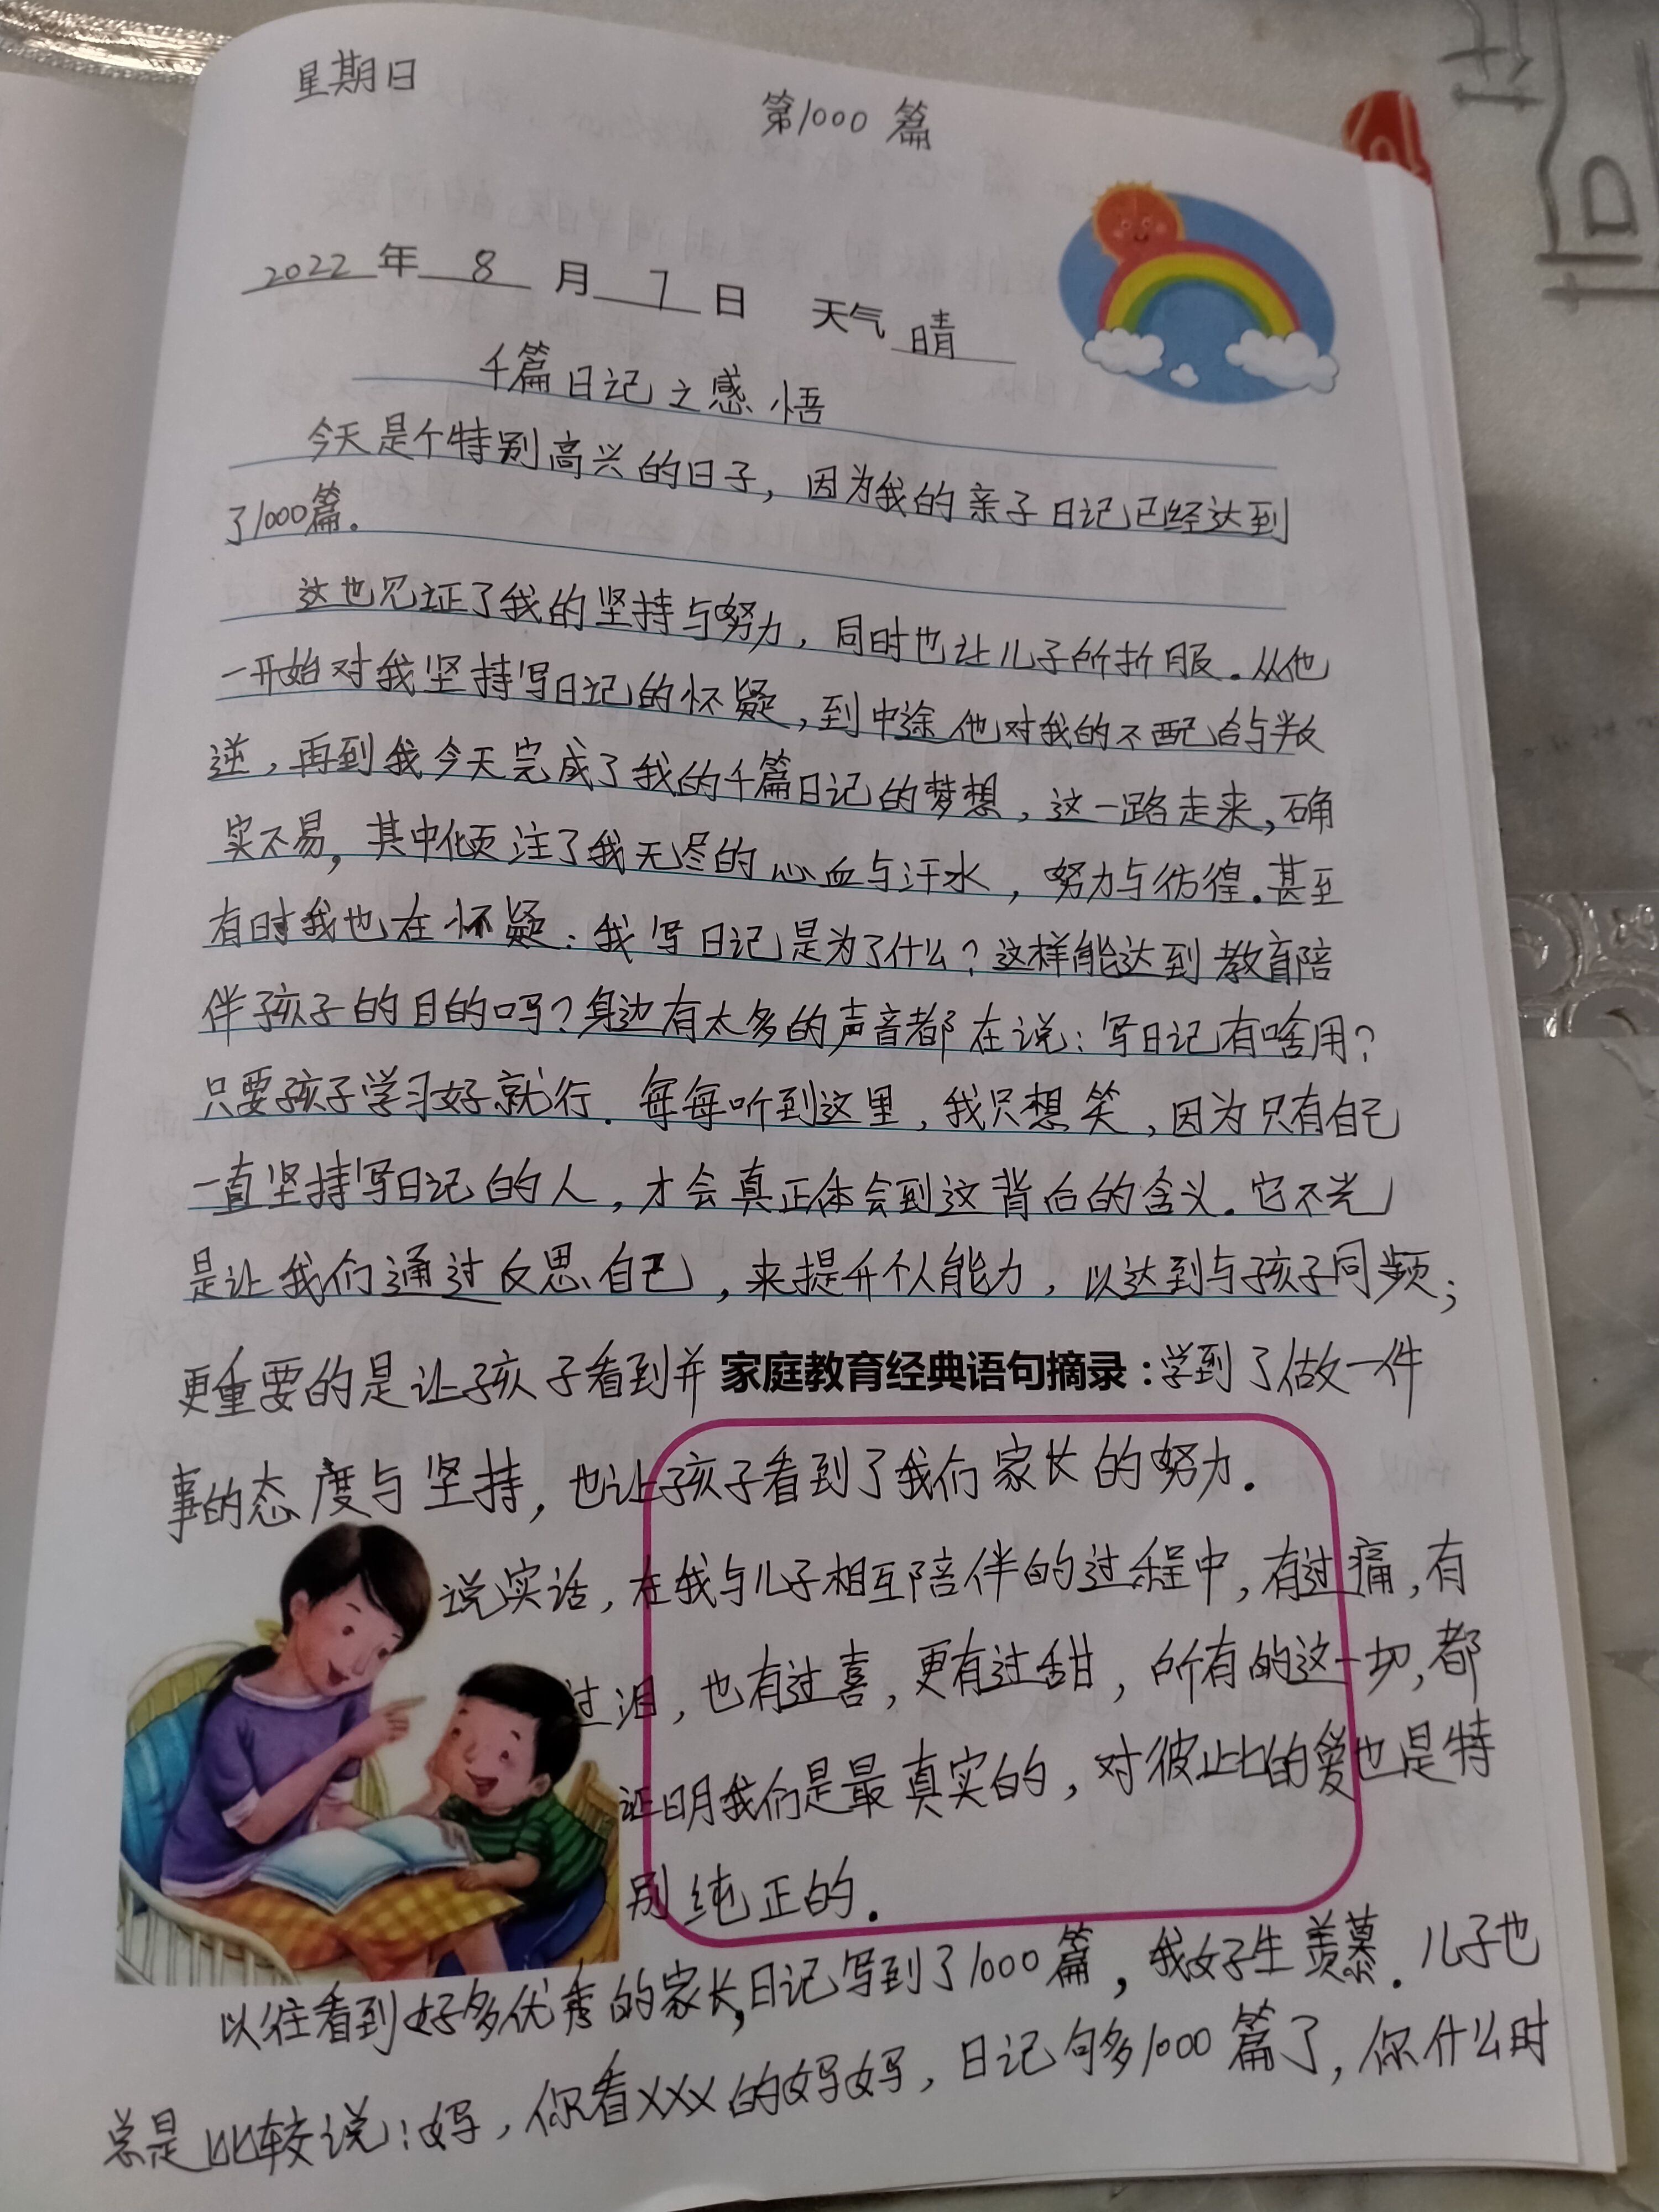 星期日
第1000篇
2022年8月7日 天气 晴
千篇日记之感悟
今天是个特别高兴的日子，因为我的亲子日记已经达到
了1000篇。
这也见证了我的坚持与努力，同时也让儿子所折服。从他
一开始对我坚持写日记的怀疑，到中途他对我的不配合与叛
逆，再到我今天完成了我的千篇日记的梦想，这一路走来，确
实不易，其中倾注了我无尽的心血与汗水，努力与彷徨。甚至
有时我也在怀疑：我写日记是为了什么？这样能达到教育陪
伴孩子的目的吗？身边有太多的声音都在说：写日记有啥用？
只要孩子学习好就行。每每听到这里，我只想笑，因为只有自己
一直坚持写日记的人，才会真正体会到这背后的含义。它不光
是让我们通过反思自己，来提升个人能力，以达到与孩子同频；
更重要的是让孩子看到并 家庭教育经典语句摘录：学到了做一件
事的态度与坚持，也让孩子看到了我们家长的努力。
说实话，在我与儿子相互陪伴的过程中，有过痛，有
过泪，也有过喜，更有过甜，所有的这一切，都
证明我们是最真实的，对彼此的爱也是特
别纯正的。
以往看到好多优秀的家长，日记写到了1000篇，我好生羡慕。儿子也
总是比较说：妈，你看XXX的妈妈，日记都多1000篇了，你什么时